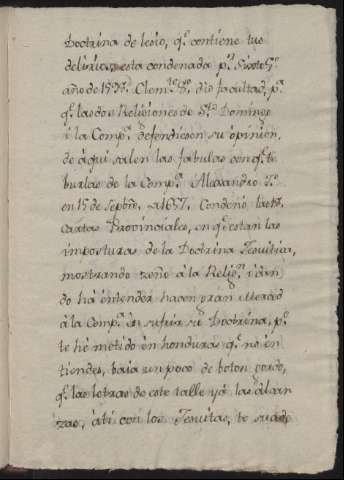 Doctrina de lesio, qe. contiene tus
delirios esta condenada pr. Sixto 5o.
año de 1588. Clemte. 8o. dio facultad, pa.
qe. las dos Religiones de Sto. Domingo
i la Compa. defendiesen su opinion,
de aqui salen las fabulas con qe. te
burlas de la Compa. Alexandro 7o.
en 15 de Septre. 1657. Condenó las
Cartas Provinciales, en qe. estan las
imposturas de la Doctrina Jesuitica,
mostrando á la Relign. i dan
do há entender hacen gran merced
á la Compa. en sufrir su Doctrina, pr.
te hé metido en honduras qe. no en
tiendes, baia un poco de boton gordo,
qe. las letras de este talle yá las alcan
zas, á ti con los Jesuitas, te